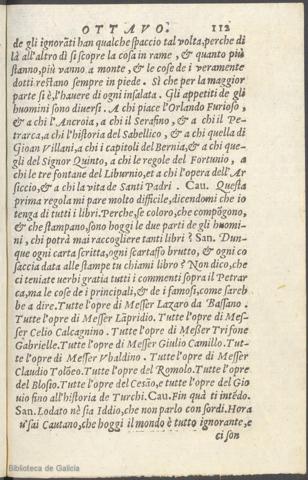 OTTAVO. 112
de gli ignorāti han qualche spaccio tal volta, perche di
là all'altro dì si scopre la cosa in rame, & quanto più
stanno, più vanno a monte, & le cose de i veramente
dotti restano sempre in piede. Sì che per la maggior
parte si è l'hauere di ogni insalata. Gli appetiti de gli
huomini sono diuersi. A chi piace l'Orlando Furioso,
& a chi l'Ancroia, a chi il Serafino, & a chi il Pe-
trarca, a chi l'historia del Sabellico, & a chi quella di
Gioan Villani, a chi i capitoli del Bernia, & a chi que-
gli del Signor Quinto, a chi le regole del Fortunio, a
chi le tre fontane del Liburnio, et a chi l'opera dell'Ar
siccio, & a chi la vita de Santi Padri. Cau. Questa
prima regola mi pare molto difficile, dicendomi che io
tenga di tutti i libri. Perche, se coloro, che compōgono,
& che stampano, sono hoggi le due parti de gli huomi-
ni, chi potrà mai raccogliere tanti libri? San. Dun-
que ogni carta scritta, ogni scartaffo brutto, & ogni co
saccia data alle stampe tu chiami libro? Non dico, che
ci teniate uerbi gratia tutti i commenti sopra il Petrar
ca, ma le cose de i principali, & de i famosi, come sareb
be a dire. Tutte l'opre di Messer Lazaro da Bassano.
Tutte l'opre di Messer Lāpridio. Tutte l'opre di Mes-
ser Celio Calcagnino. Tutte l'opre di Messer Trifone
Gabrielle. Tutte l'opre di Messer Giulio Camillo. Tut-
te l'opre di Messer Vbaldino. Tutte l'opre di Messer
Claudio Tolōeo. Tutte l'opre del Romolo. Tutte l'opre
del Blosio. Tutte l'opre del Cesāo, e tutte l'opre del Gio
uio fino all'historia de Turchi. Cau. Fin quà ti intēdo.
San. Lodato nè sia Iddio, che non parlo con sordi. Hora
u'sai Cautano, che hoggi il mondo è tutto ignorante, e
ci son
Biblioteca de Galicia